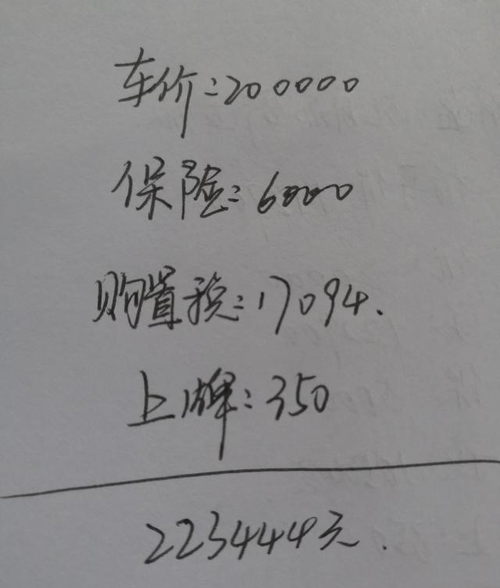 车价:200000
保险:6000
购置税:17094.
上牌:350
223444元.